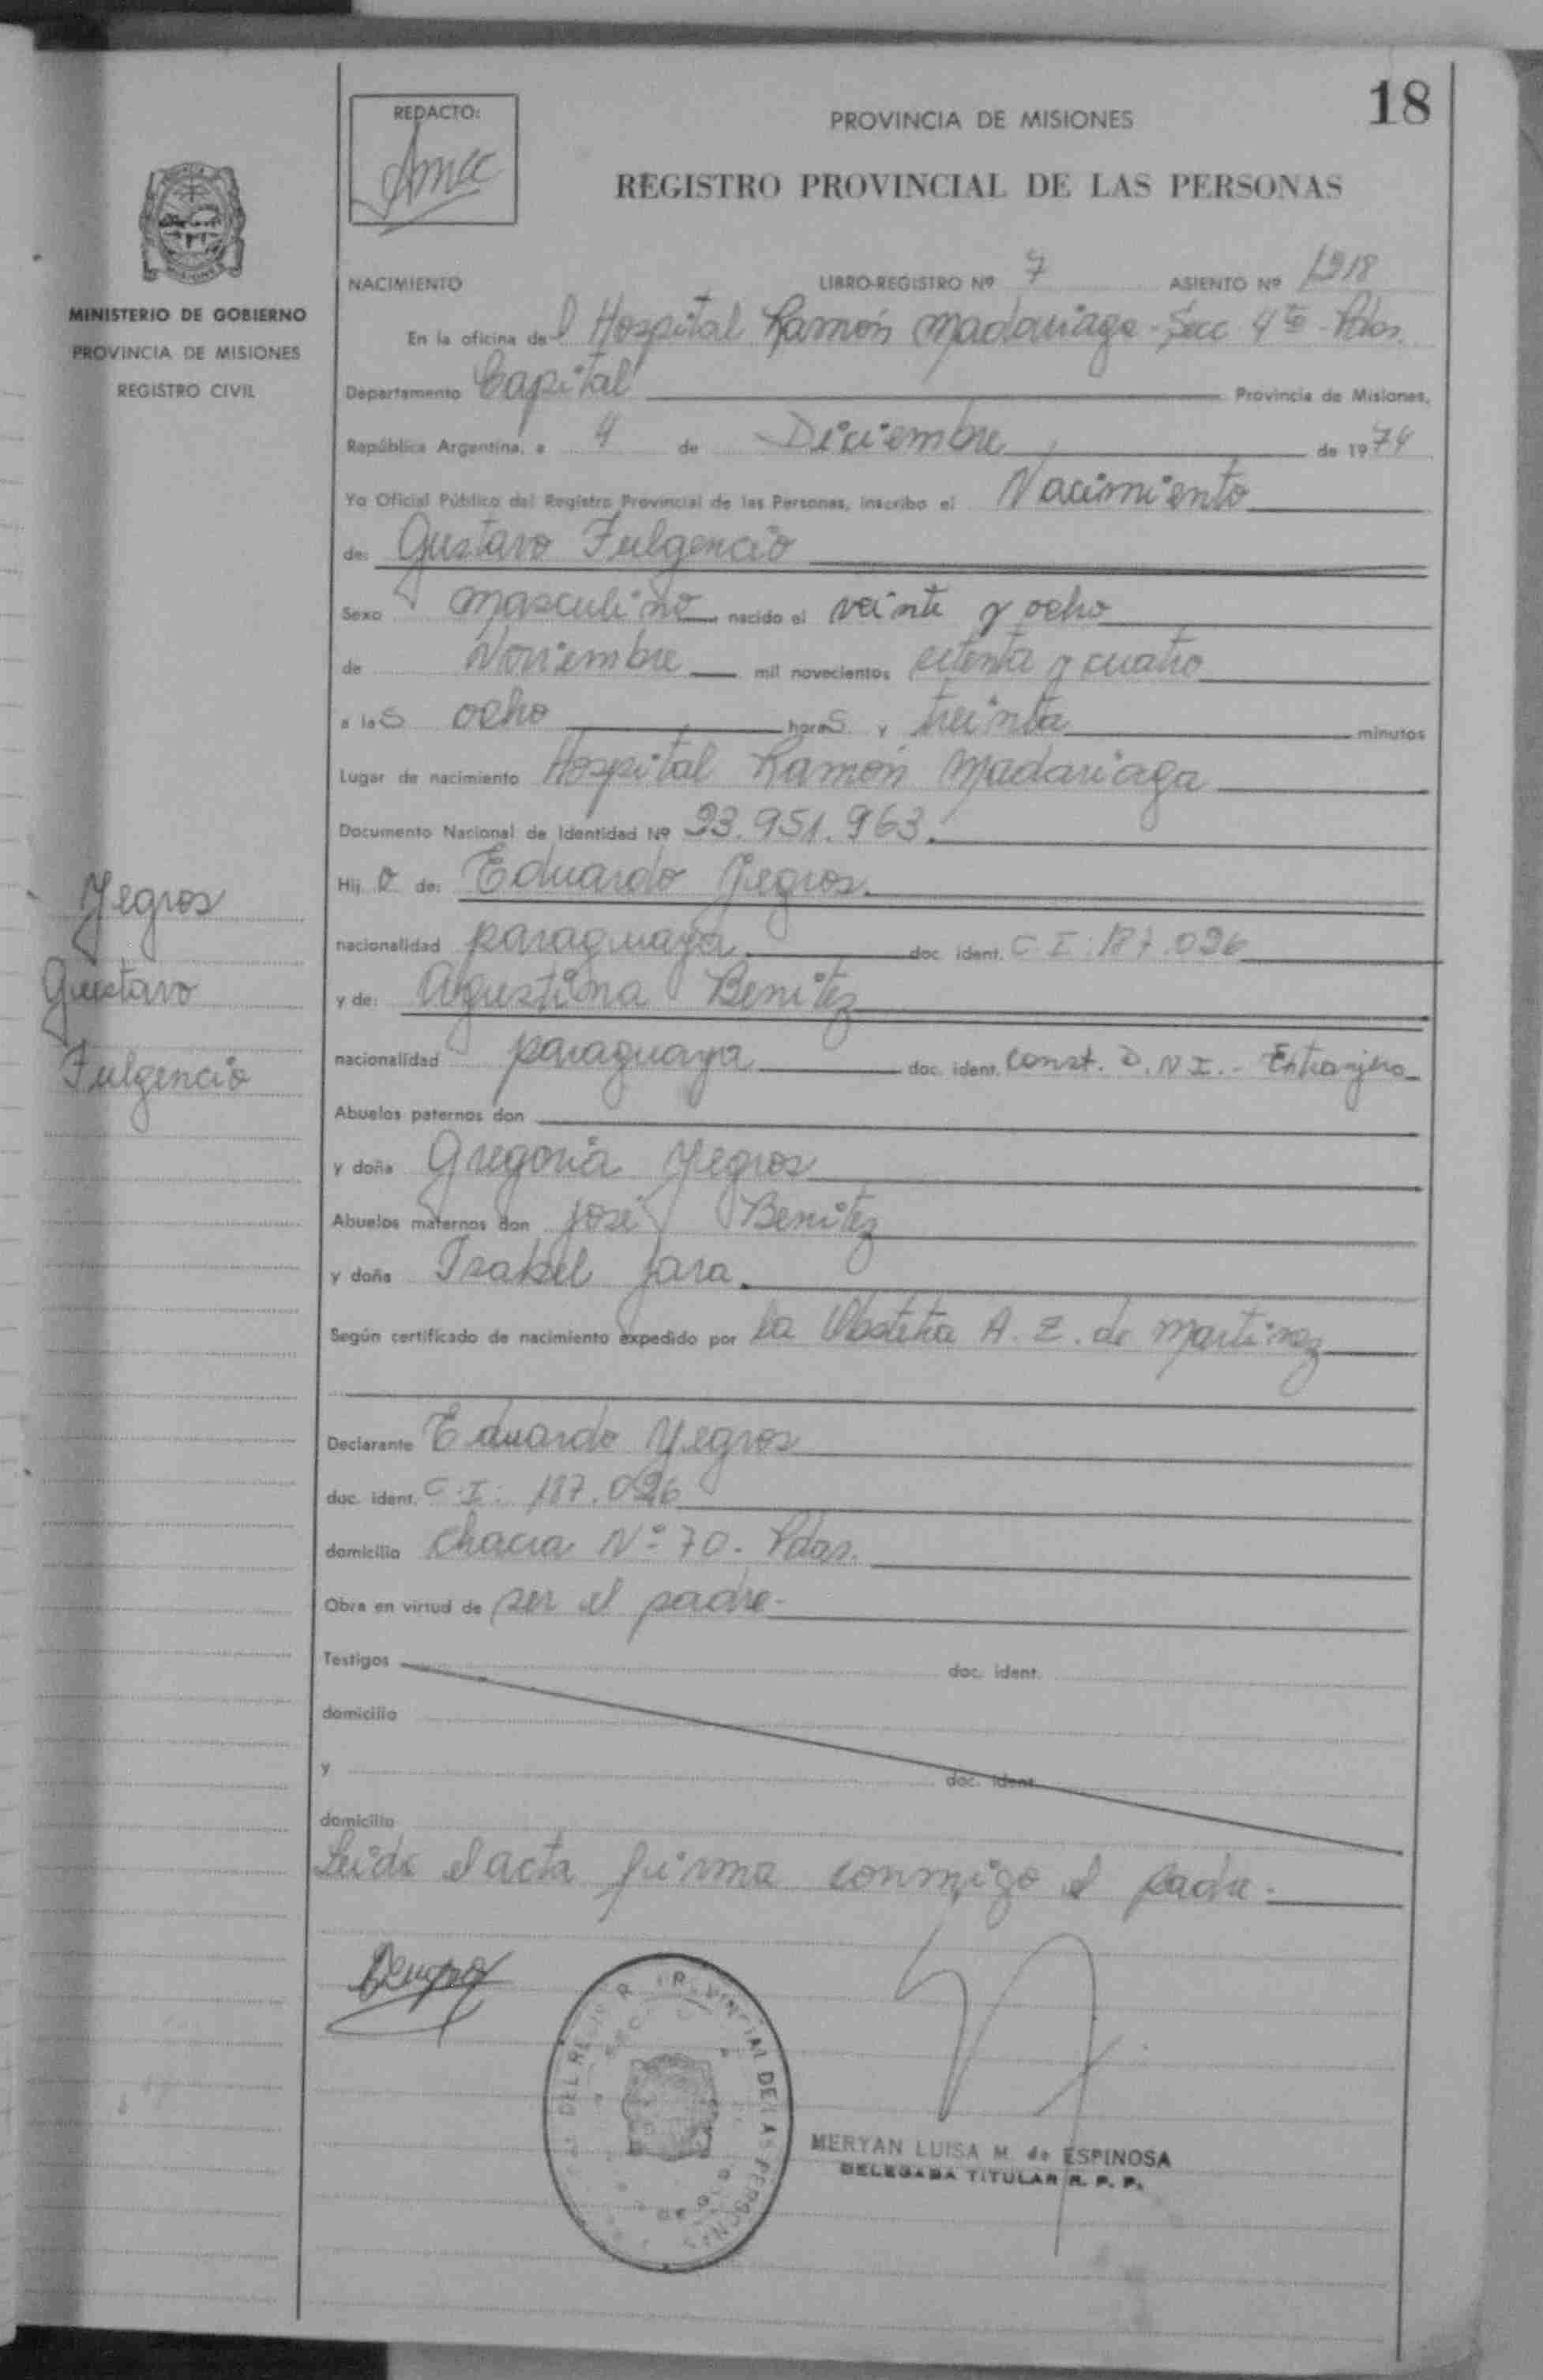 18
REDACTO:
PROVINCIA DE MISIONES
REGISTRO PROVINCIAL DE LAS PERSONAS
MINISTERIO DE GOBIERNO
PROVINCIA DE MISIONES
REGISTRO CIVIL
NACIMIENTO LIBRO-REGISTRO Nº 7 ASIENTO Nº 1218
En la oficina del Hospital Ramón Madariaga - Secc 4ta - Pdas.
Departamento Capital Provincia de Misiones,
República Argentina, a 4 de Diciembre de 1974
Yo Oficial Público del Registro Provincial de las Personas, inscribo el Nacimiento
de: Gustavo Fulgencio
Sexo masculino nacido el veinte y ocho
de Noviembre mil novecientos setenta y cuatro
a las ocho horas y treinta minutos
Lugar de nacimiento Hospital Ramón Madariaga
Documento Nacional de Identidad Nº 23.951.963.
Hijo de: Eduardo Yegros.
nacionalidad paraguaya doc. ident. C.I: 187.026
y de: Agustina Benitez
nacionalidad paraguaya doc. ident. Const. D.N.I. - Extranjero
Abuelos paternos don
y doña Gregoria Yegros
Abuelos maternos don José Benitez
y doña Isabel Jara.
Según certificado de nacimiento expedido por la Obstetra A. Z. de Martinez
Declarante Eduardo Yegros
doc. ident. C.I: 187.026
domicilio Chacra Nº 70. Pdas.
Obra en virtud de ser el padre.
Testigos doc. ident.
domicilio
y doc. ident.
domicilio
Leida el acta firma conmigo el padre.
Yegros
Gustavo
Fulgencio
PROVINCIAL DE LAS PERSONAS
MERYAN LUISA M. de ESPINOSA
DELEGADA TITULAR R. P. P.